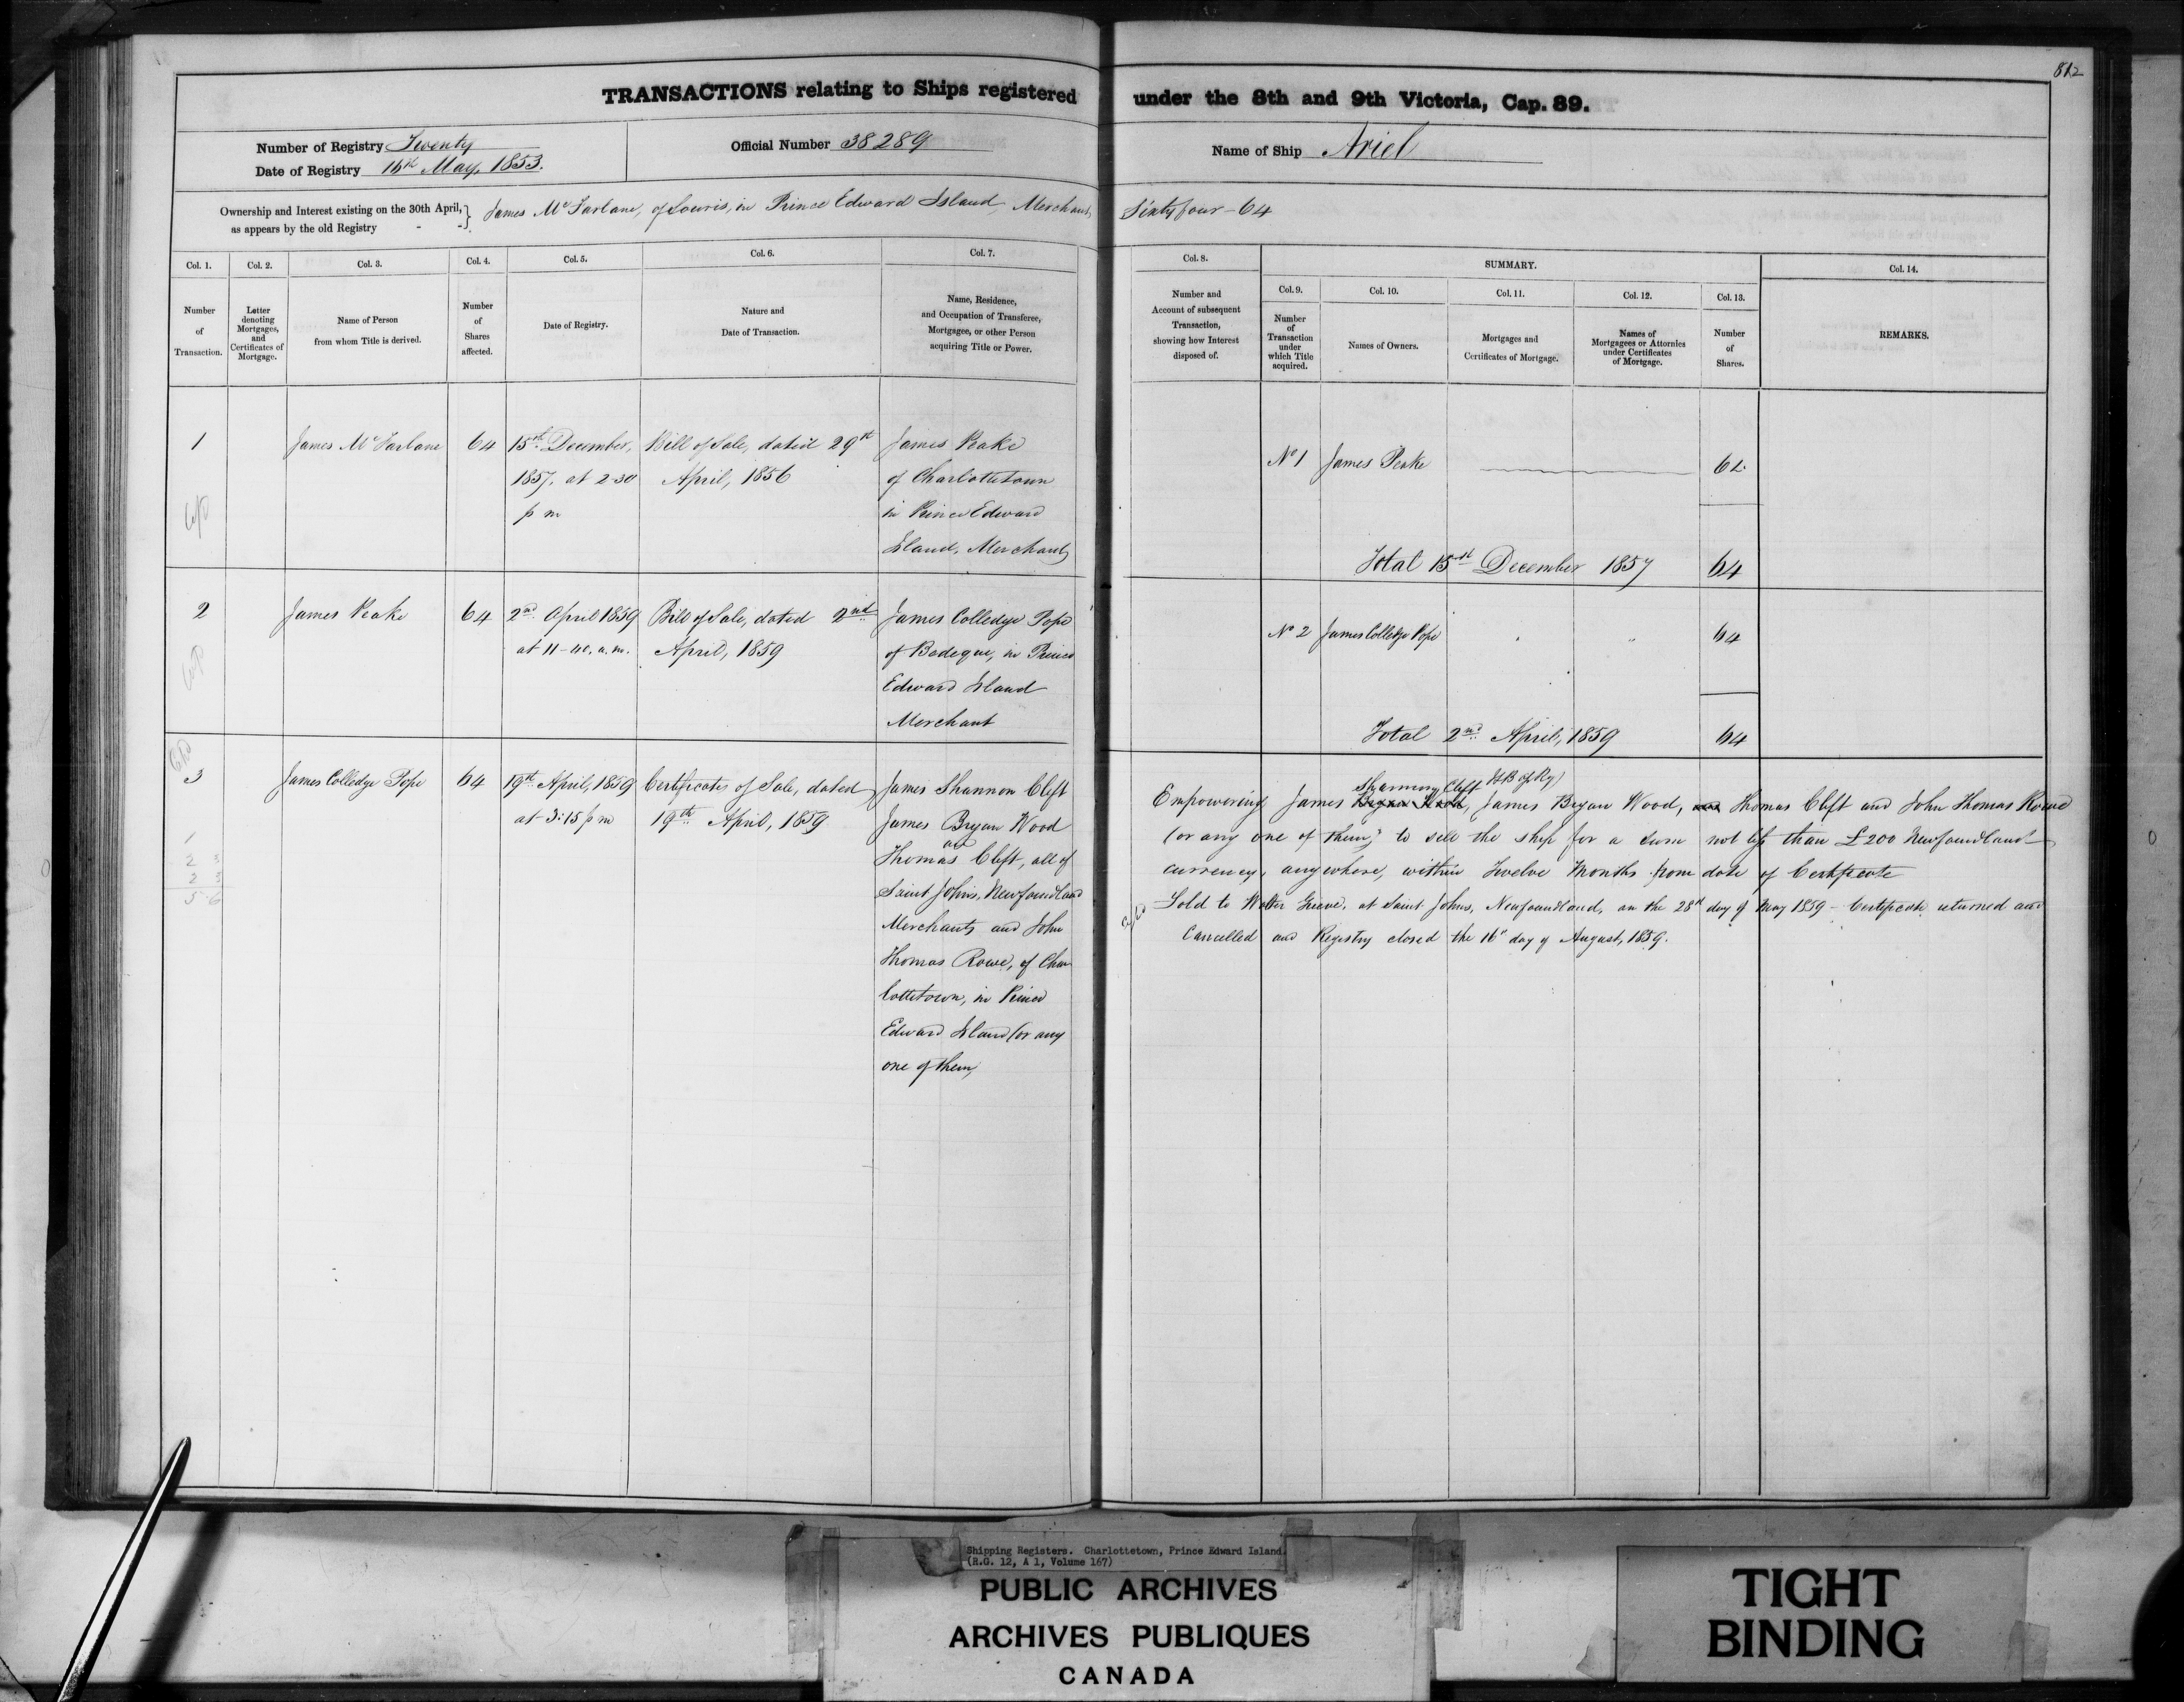 812
TRANSACTIONS relating to Ships registered under the 8th and 9th Victoria, Cap. 89.
Number of Registry Twenty
Date of Registry 16th May, 1853.
Official Number 38289
Name of Ship Ariel
Ownership and Interest existing on the 30th April, as appears by the old Registry - - } James McFarlane, of Souris, in Prince Edward Island, Merchant, Sixty four - 64
Col. 1.
Number
of
Transaction.
Col. 2.
Letter
denoting
Mortgages,
and
Certificates of
Mortgage.
Col. 3.
Name of Person
from whom Title is derived.
Col. 4.
Number
of
Shares
affected.
Col. 5.
Date of Registry.
Col. 6.
Nature and
Date of Transaction.
Col. 7.
Name, Residence,
and Occupation of Transferee,
Mortgagee, or other Person
acquiring Title or Power.
Col. 8.
Number and
Account of subsequent
Transaction,
showing how Interest
disposed of.
SUMMARY.
Col. 9.
Number
of
Transaction
under
which Title
acquired.
Col. 10.
Names of Owners.
Col. 11.
Mortgages and
Certificates of Mortgage.
Col. 12.
Names of
Mortgagees or Attornies
under Certificates
of Mortgage.
Col. 13.
Number
of
Shares.
Col. 14.
REMARKS.
1
James McFarlane
64
15th December,
1857, at 2-30
p m
Bill of Sale, dated 29th
April, 1856
James Peake
of Charlottetown
in Prince Edward
Island, Merchant
No 1 James Peake 64
Total 15th December 1857 64
2
James Peake
64
2nd April 1859
at 11-40. a.m.
Bill of Sale, dated 2nd
April, 1859
James Colledge Pope
of Bedeque, in Prince
Edward Island
Merchant
No 2 James Colledge Pope " " 64
Total 2nd April, 1859 64
3
James Colledge Pope
64
19th April, 1859
at 3:15 p m
Certificate of Sale, dated
19th April, 1859
James Shannon Clift
James Bryan Wood
and
Thomas Clift, all of
Saint Johns, Newfoundland
Merchants and John
Thomas Rowe, of Char
lottetown, in Prince
Edward Island (or any
one of them)
Shannon Clift
Empowering James Bryan Wood, James Bryan Wood, and Thomas Clift and John Thomas Rowe
(or any one of them) to sell the ship for a sum not less than £200 Newfoundland
currency, anywhere, within Twelve Months from date of Certificate
Sold to Walter Grieve, at Saint Johns, Newfoundland, on the 28th day of May 1859 - Certificate returned and
Cancelled and Registry closed the 16" day of August, 1859.
1
2 3
2 3
5-6
Shipping Registers. Charlottetown, Prince Edward Island.
(R.G. 12, A 1, Volume 167)
PUBLIC ARCHIVES
ARCHIVES PUBLIQUES
CANADA
TIGHT
BINDING